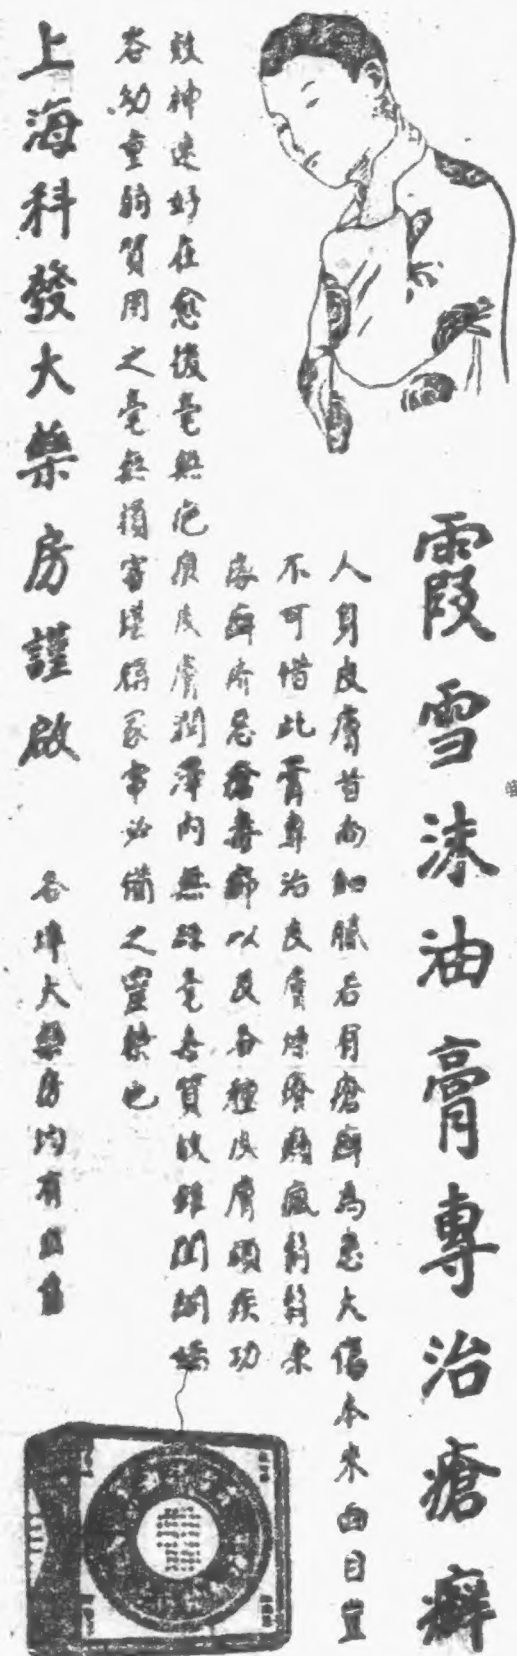 霞雪沫油膏專治瘡癬
人身皮膚首尚細膩若有瘡癬為患大傷本來面目豈
不可惜此膏專治皮膚
瘡毒癤以及各種皮膚頑疾功
效神速好在愈後毫無疤痕皮膚潤澤內無絲毫
質故雖閨閣嬌
容幼童弱質用之毫無損害堪稱家常必備之靈藥也
上海科發大藥房謹啟
各埠大藥房均有出售